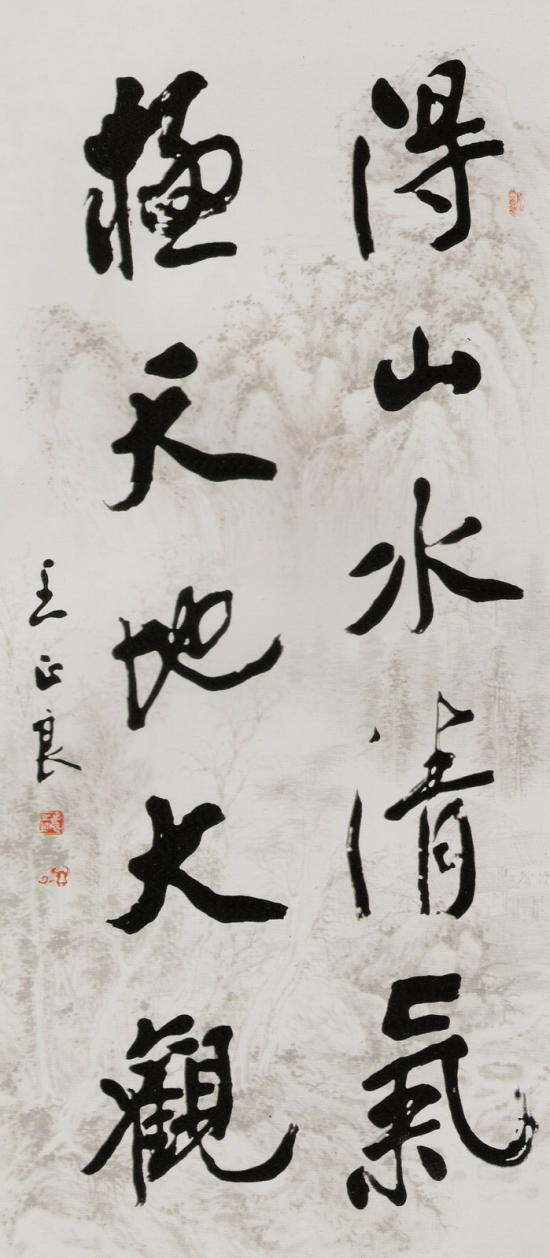 得山水清氣
極天地大觀
王正良